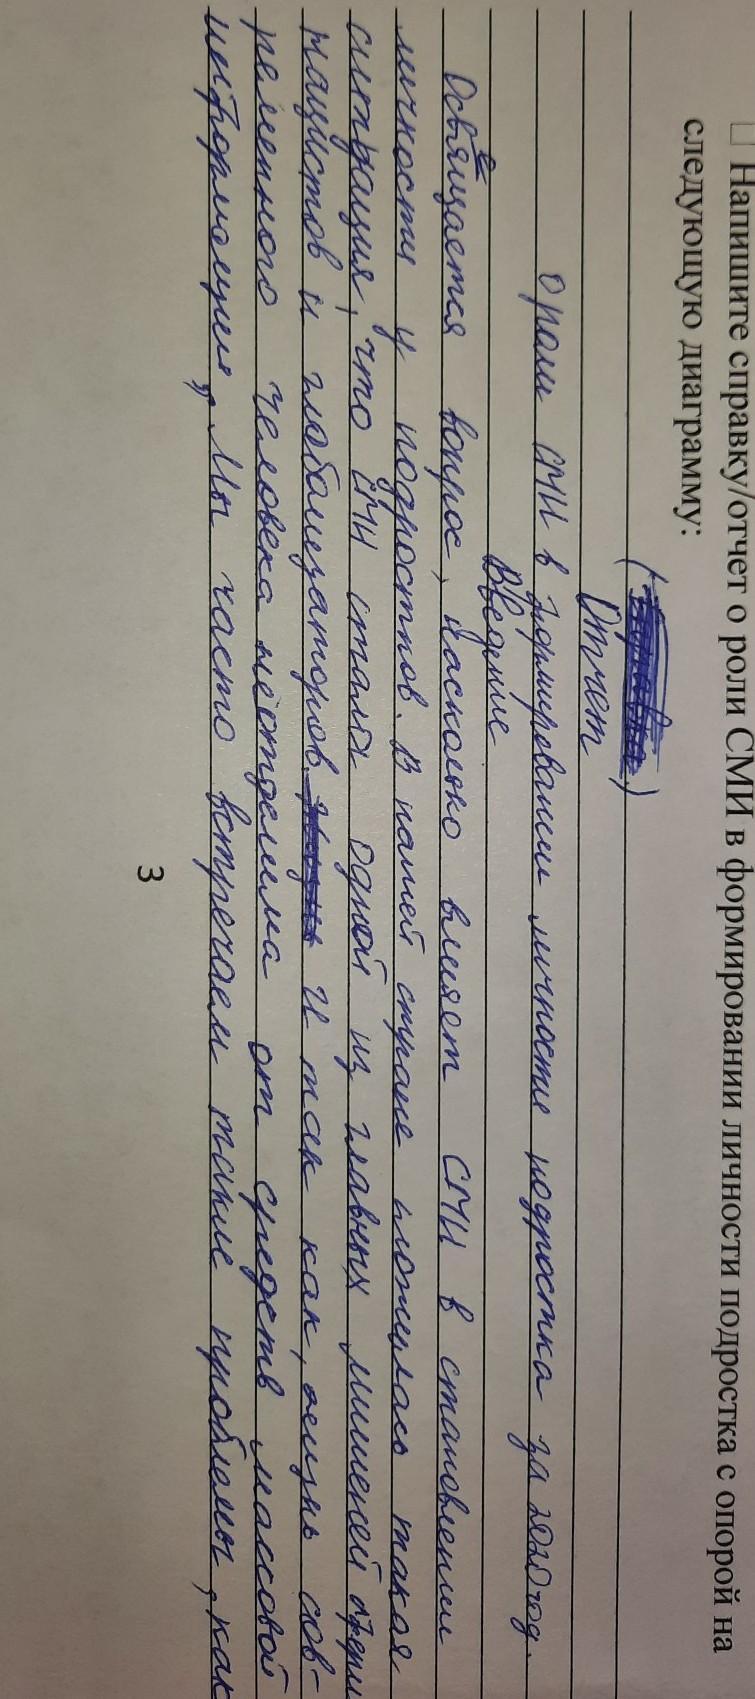 Напишите справку/отчет о роли СМИ в формировании личности подростка с опорой на
следующую диаграмму:
Отчет
о роли СМИ в формировании личностие подростка за 2020год.
Введение
Освящается вопрос, насколько влияет СМИ в становлении
личности у подростков. В нашей стране сложилась такая
ситуация, что СМИ стала одной из главных мишеней
нацистов и глобализаторов. И так как, жизнь сов-
ременного человека неотделима от средств массовой
информации, Мы часто встречаем такие проблемы, как
3